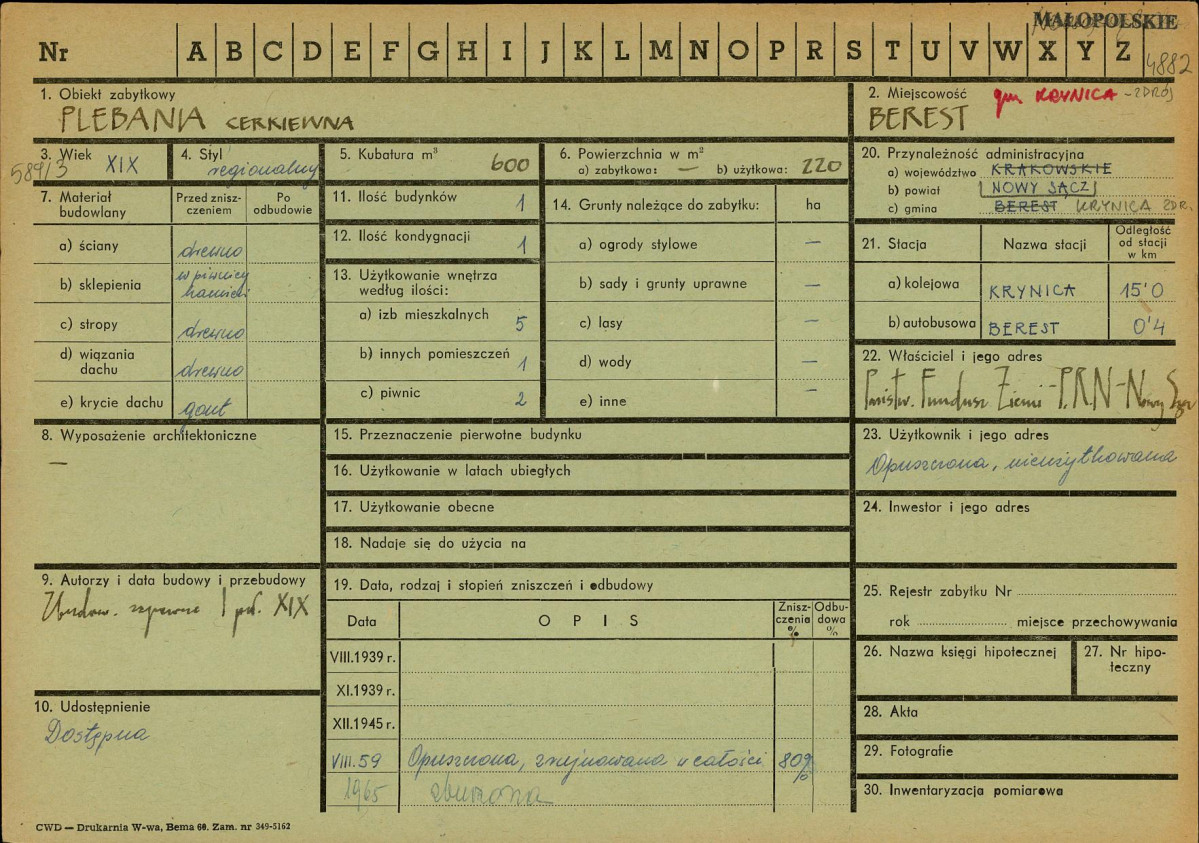 MAŁOPOLSKIE
Nr A B C D E F G H I J K L M N O P R S T U V W X Y Z
4882
1. Obiekt zabytkowy
PLEBANIA CERKIEWNA
2. Miejscowość gm KRYNICA - ZDRÓJ
BEREST
589/3
3. Wiek XIX
4. Styl regionalny
5. Kubatura m³ 600
6. Powierzchnia w m²
a) zabytkowa: — b) użytkowa: 220
20. Przynależność administracyjna
a) województwo KRAKOWSKIE
b) powiat NOWY SĄCZ
c) gmina BEREST KRYNICA ZDR.
7. Materiał budowlany
Przed zniszczeniem
Po odbudowie
a) ściany drewno
b) sklepienia w piwnicy kamień
c) stropy drewno
d) wiązania dachu drewno
e) krycie dachu gont
11. Ilość budynków 1
12. Ilość kondygnacji 1
13. Użytkowanie wnętrza według ilości:
a) izb mieszkalnych 5
b) innych pomieszczeń 1
c) piwnic 2
14. Grunty należące do zabytku: ha
a) ogrody stylowe —
b) sady i grunty uprawne —
c) lasy —
d) wody —
e) inne
21. Stacja Nazwa stacji Odległość od stacji w km
a) kolejowa KRYNICA 15'0
b) autobusowa BEREST 0'4
22. Właściciel i jego adres
Państw. Fundusz Ziemi - P.R.N - Nowy Sącz
8. Wyposażenie architektoniczne
—
15. Przeznaczenie pierwotne budynku
16. Użytkowanie w latach ubiegłych
17. Użytkowanie obecne
18. Nadaje się do użycia na
23. Użytkownik i jego adres
Opuszczona, nieużytkowana
24. Inwestor i jego adres
9. Autorzy i data budowy i przebudowy
Zbudow. zapewne I poł. XIX
19. Data, rodzaj i stopień zniszczeń i odbudowy
Data OPIS Zniszczenia % Odbudowa %
VIII.1939 r.
XI.1939 r.
XII.1945 r.
VIII.59 Opuszczona, zrujnowana w całości 80%
1965 zburzona
25. Rejestr zabytku Nr
rok miejsce przechowywania
26. Nazwa księgi hipotecznej
27. Nr hipoteczny
10. Udostępnienie
Dostępna
28. Akta
29. Fotografie
30. Inwentaryzacja pomiarowa
CWD — Drukarnia W-wa, Bema 60. Zam. nr 349-5162